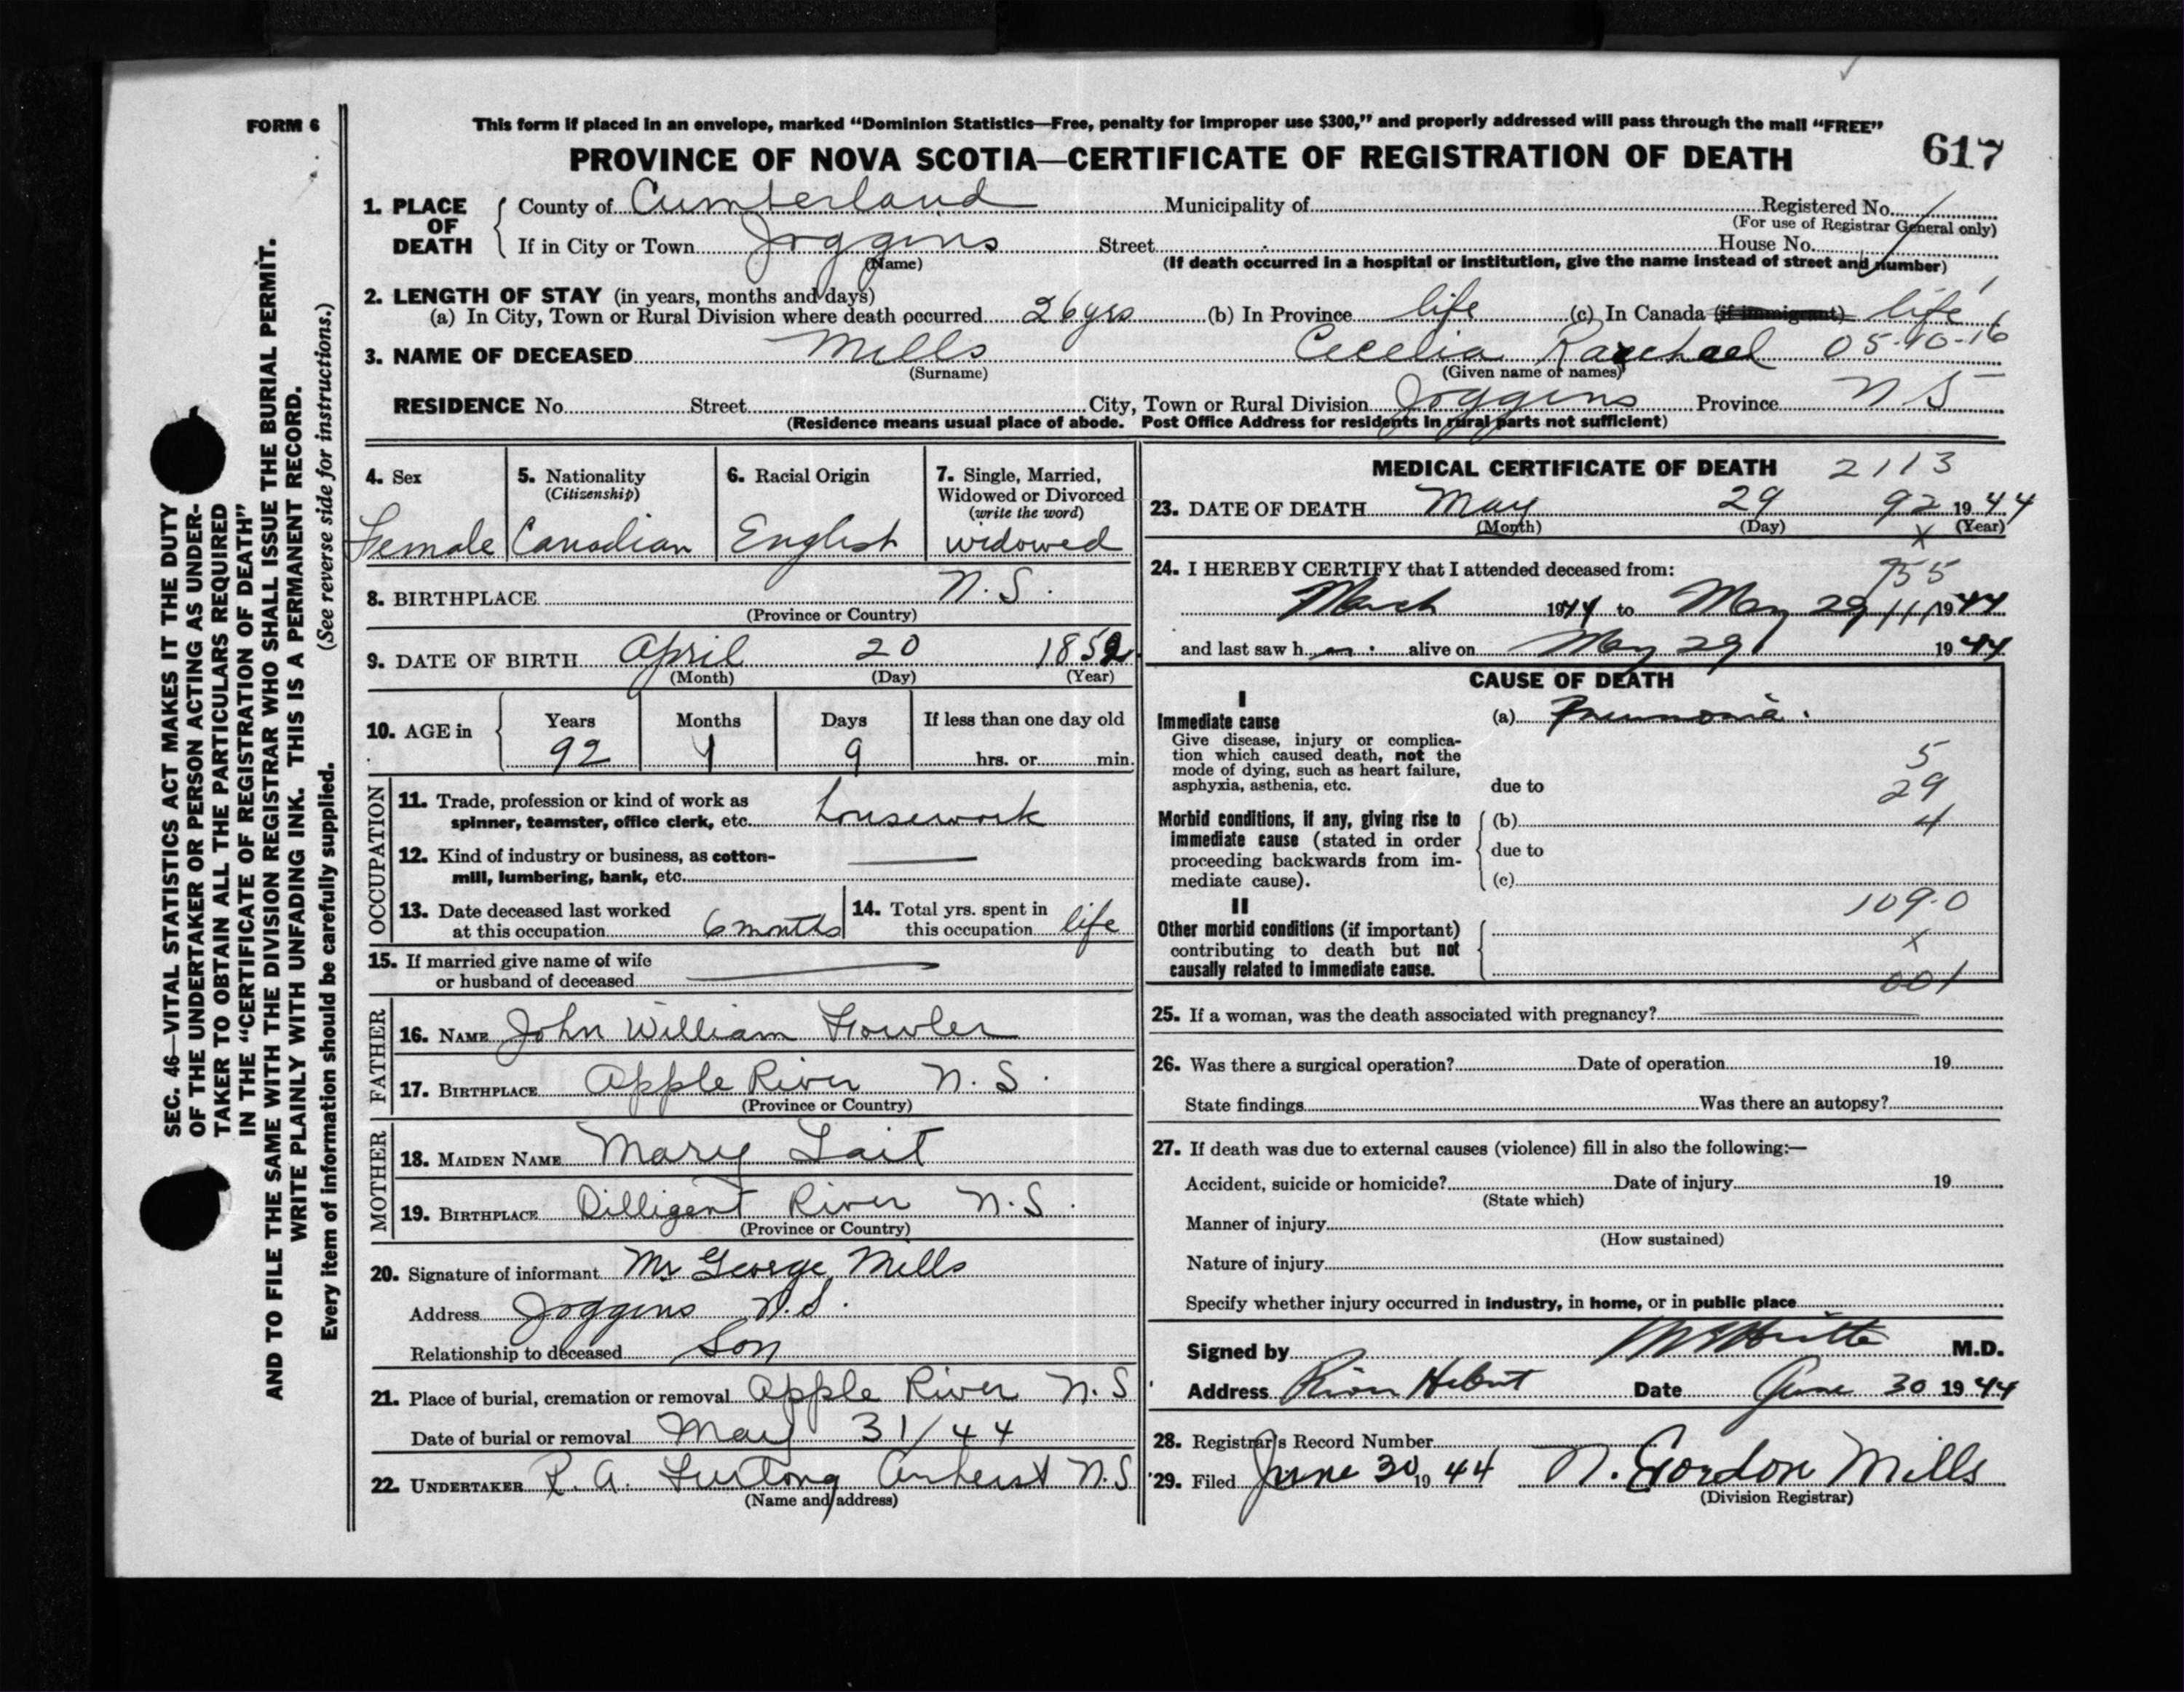 FORM 6
This form if placed in an envelope, marked “Dominion Statistics—Free, penalty for improper use $300,” and properly addressed will pass through the mail “FREE”
PROVINCE OF NOVA SCOTIA—CERTIFICATE OF REGISTRATION OF DEATH
617
1. PLACE OF DEATH
County of Cumberland Municipality of Registered No.
(For use of Registrar General only)
If in City or Town Joggins Street House No.
(Name) (If death occurred in a hospital or institution, give the name instead of street and number)
2. LENGTH OF STAY (in years, months and days)
(a) In City, Town or Rural Division where death occurred 26 yrs (b) In Province life (c) In Canada (if immigrant) life
3. NAME OF DECEASED Mills Cecelia Raechael 05-10-16
(Surname) (Given name or names)
RESIDENCE No. Street City, Town or Rural Division Joggins Province N S
(Residence means usual place of abode. Post Office Address for residents in rural parts not sufficient)
4. Sex
Female
5. Nationality
(Citizenship)
Canadian
6. Racial Origin
English
7. Single, Married,
Widowed or Divorced
(write the word)
widowed
8. BIRTHPLACE N.S.
(Province or Country)
9. DATE OF BIRTH April 20 1852
(Month) (Day) (Year)
10. AGE in
Years Months Days If less than one day old
92 1 9 hrs. or min.
OCCUPATION
11. Trade, profession or kind of work as
spinner, teamster, office clerk, etc. housework
12. Kind of industry or business, as cotton-
mill, lumbering, bank, etc.
13. Date deceased last worked
at this occupation 6 months
14. Total yrs. spent in
this occupation life
15. If married give name of wife
or husband of deceased
FATHER
16. NAME John William Fowler
17. BIRTHPLACE Apple River N.S.
(Province or Country)
MOTHER
18. MAIDEN NAME Mary Tait
19. BIRTHPLACE Dilligent River N.S.
(Province or Country)
20. Signature of informant Mr George Mills
Address Joggins N.S.
Relationship to deceased Son
21. Place of burial, cremation or removal Apple River N.S
Date of burial or removal May 31/44
22. UNDERTAKER R. A. Furlong Amherst N.S
(Name and address)
MEDICAL CERTIFICATE OF DEATH 2113
23. DATE OF DEATH May 29 92 1944
(Month) (Day) X (Year)
24. I HEREBY CERTIFY that I attended deceased from:
955
March 1944 to May 29 111 1944
and last saw h alive on May 29 1944
CAUSE OF DEATH
I
Immediate cause (a) Pneumonia.
Give disease, injury or complica-
tion which caused death, not the
mode of dying, such as heart failure,
asphyxia, asthenia, etc. due to
5
29
4
Morbid conditions, if any, giving rise to
immediate cause (stated in order
proceeding backwards from im-
mediate cause).
(b)
due to
(c)
II
109.0
Other morbid conditions (if important)
contributing to death but not
causally related to immediate cause.
X
001
25. If a woman, was the death associated with pregnancy?
26. Was there a surgical operation? Date of operation 19
State findings Was there an autopsy?
27. If death was due to external causes (violence) fill in also the following:—
Accident, suicide or homicide? Date of injury 19
(State which)
Manner of injury
(How sustained)
Nature of injury
Specify whether injury occurred in industry, in home, or in public place
Signed by M.D.
Address River Hebert Date June 30 1944
28. Registrar's Record Number
29. Filed June 30 1944 N. Gordon Mills
(Division Registrar)
SEC. 46—VITAL STATISTICS ACT MAKES IT THE DUTY
OF THE UNDERTAKER OR PERSON ACTING AS UNDER-
TAKER TO OBTAIN ALL THE PARTICULARS REQUIRED
IN THE “CERTIFICATE OF REGISTRATION OF DEATH”
AND TO FILE THE SAME WITH THE DIVISION REGISTRAR WHO SHALL ISSUE THE BURIAL PERMIT.
WRITE PLAINLY WITH UNFADING INK. THIS IS A PERMANENT RECORD.
Every item of information should be carefully supplied. (See reverse side for instructions.)